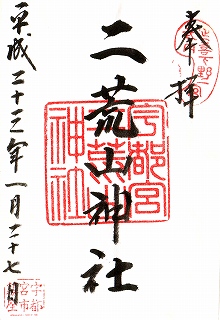 奉拝
二荒山神社
平成二十三年一月二十七日
宇都宮
二荒山
神社
宇都
宮市